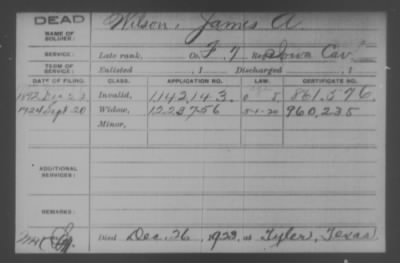 DEAD
NAME OF SOLDIER: Wilson, James A
SERVICE: Late rank, Co. F, 7 Reg't Iowa Cav
TERM OF SERVICE: Enlisted , 1 Discharged , 1
DATE OF FILING. CLASS. APPLICATION NO. LAW. CERTIFICATE NO.
1892 Dec 23 Invalid, 1142143. 861,576.
1924 Sept 20 Widow, 1223756 5-1-20 960,235
Minor,
ADDITIONAL SERVICES:
REMARKS:
Died Dec. 26, 1923, at Tyler, Texas